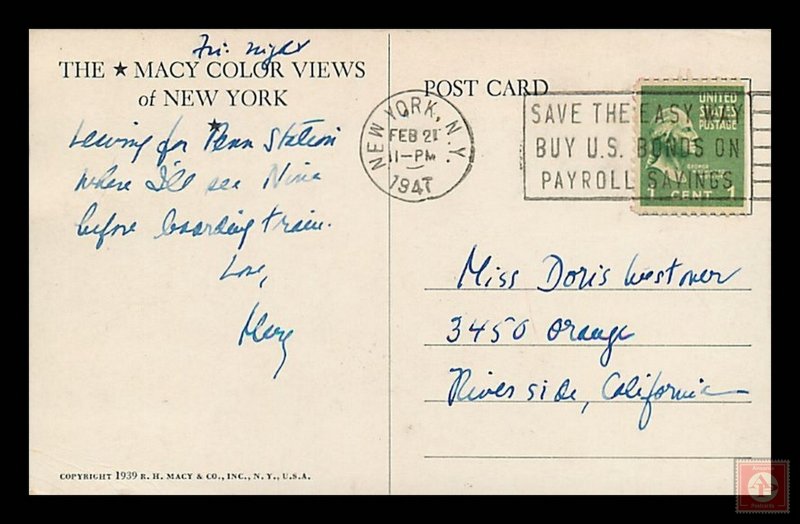 Fri. night
THE ★ MACY COLOR VIEWS
of NEW YORK
Leaving for Penn Station
where I'll see Nina
before boarding train.
Love,
Mary
COPYRIGHT 1939 R. H. MACY & CO., INC., N. Y., U.S.A.
POST CARD
NEW YORK, N.Y.
FEB 21
11-PM
1947
SAVE THE EASY WAY
BUY U.S. BONDS ON
PAYROLL SAVINGS
UNITED
STATES
POSTAGE
1 CENT 1
Miss Doris Westover
3450 Orange
Riverside, California
Postcards